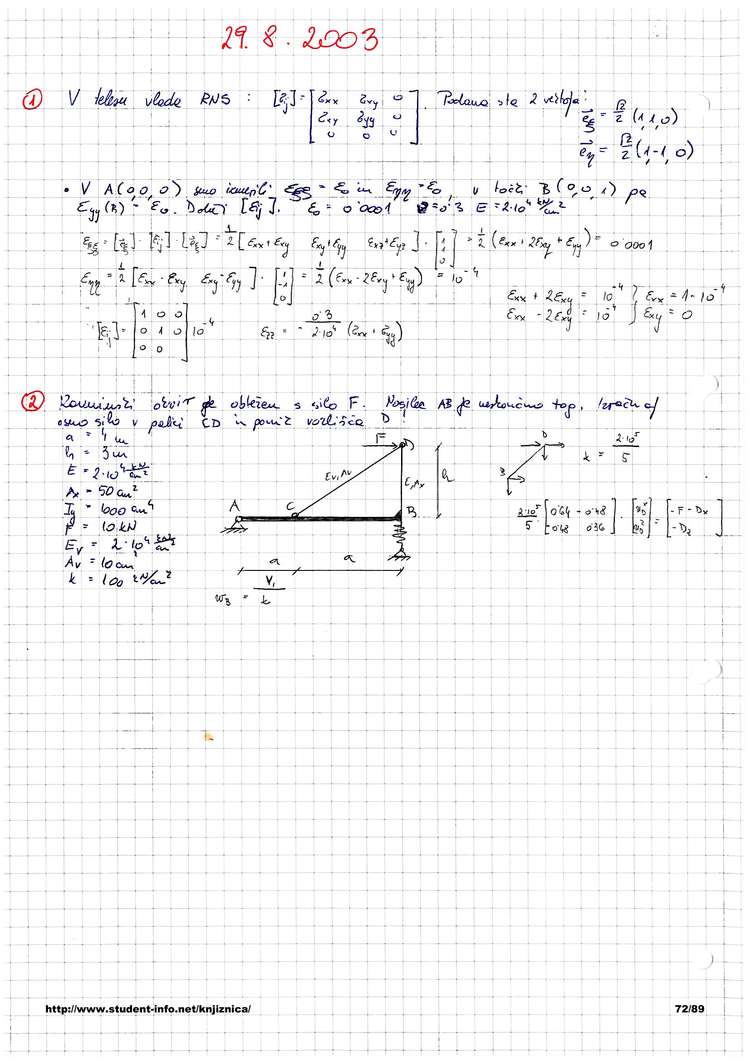 29.8.2003
① V telesu vlada RNS : [σij] = [σxx σxy 0 / σxy σyy 0 / 0 0 0]. Podana sta 2 vektorja:
e⃗ξ = √2/2 (1,1,0)
e⃗η = √2/2 (1,-1,0)
• V A(0,0,0) smo izmerili εξξ = ε0 in εηη = ε0, v točki B(0,0,1) pa
εyy(B) = ε0. Določi [εij]. ε0 = 0'0001 ν = 0'3 E = 2·10⁴ kN/cm²
εξξ = [e⃗ξ]·[εij]·[e⃗ξ] = 1/2 [εxx+εxy εxy+εyy εxz+εyz]·[1 / 1 / 0] = 1/2 (εxx + 2εxy + εyy) = 0'0001
εηη = 1/2 [εxx - εxy εxy - εyy ]·[1 / -1 / 0] = 1/2 (εxx - 2εxy + εyy) = 10⁻⁴
εxx + 2εxy = 10⁻⁴ } εxx = 1·10⁻⁴
εxx - 2εxy = 10⁻⁴ } εxy = 0
[εij] = [1 0 0 / 0 1 0 / 0 0] 10⁻⁴ εzz = - 0'3/2·10⁴ (σxx + σyy)
② okvir je obtežen s silo F. Nosilec AB je neskončno tog. Izračunaj
osno silo v palici CD in pomik vozlišča D!
a = 4 m
h = 3 m
E = 2·10⁴ kN/cm²
Ax = 50 cm²
Iy = 1000 cm⁴
F = 10 kN
Ev = 2·10⁴ kN/cm²
Av = 10 cm²
k = 100 kN/cm²
F D
Ev, Av E, Ax h
A C B
a a
wB = V1/k
D
B
k = 2·10⁵/5
2·10⁵/5 [0'64 -0'48 / -0'48 0'36]·[ ] = [-F - Dx / -Dz]
http://www.student-info.net/knjiznica/
72/89